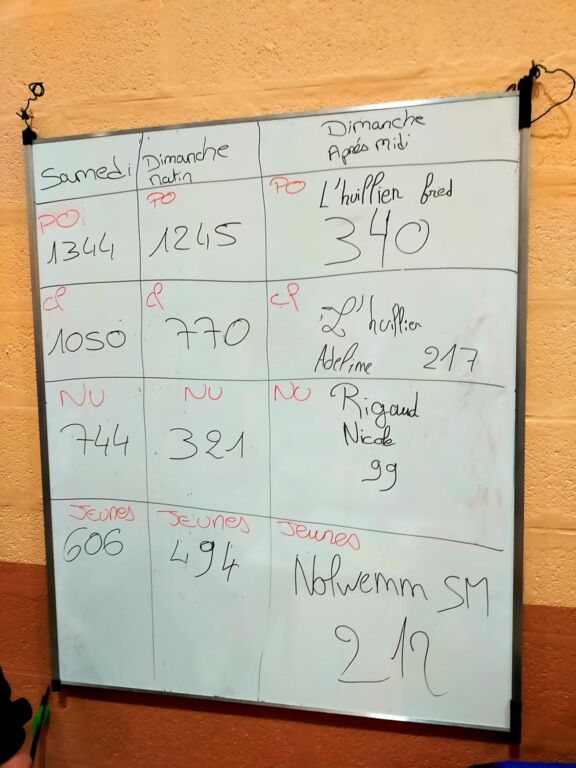 Samedi
Dimanche
Matin
Dimanche
Après Midi
PO:
1344
PO
1245
PO L'huillier fred
340
cl
1050
cl
770
cl L'huillier
Adeline 217
NU
744
NU
321
NU Rigaud
Nicole
99
Jeunes
606
Jeunes
494
Jeunes
Nolwenn SM
212